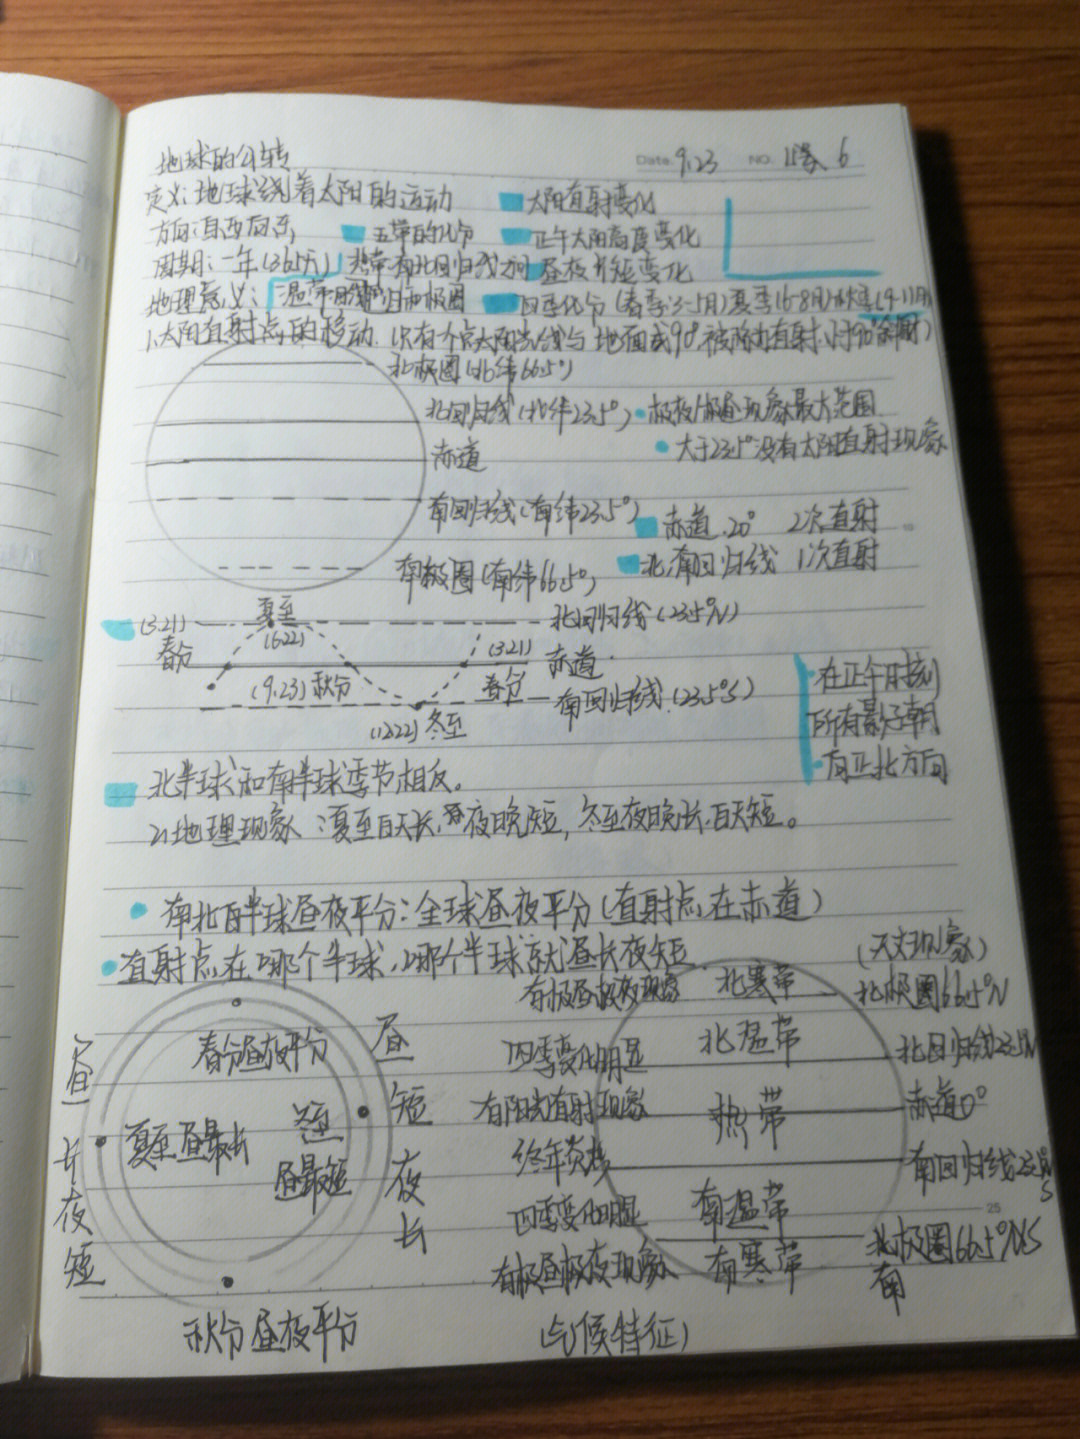 地球的公转 Date. 9.23 NO. 6
定义:地球绕着太阳的运动 太阳直射变化
方向:自西向东 五带的化分 正午太阳高度变化
周期:一年(365天) 热带:南北回归线之间 昼夜长短变化
地理意义: 温带: 四季化分(春季:3-5月)夏季(6-8月)秋季(9-11月)
1、太阳直射点的移动.(只有个点太阳光线与地面成90°,被称为直射.
北极圈(北纬66.5°)
北回归线(北纬23.5°) 极夜/极昼现象最大范围
赤道 大于23.5°没有太阳直射现象
南回归线(南纬23.5°) 赤道.20° 2次直射
南极圈(南纬66.5°) 北.南回归线 1次直射
(3.21) 夏至 北回归线(23.5°N)
春分 (6.22) (3.21) 赤道
(9.23)秋分 春分 南回归线(23.5°S)
(12.22)冬至
·在正午时刻
所有影子朝
·向正北方向
北半球和南半球季节相反。
2、地理现象:夏至白天长,夜晚短,冬至夜晚长,白天短。
南北半球昼夜平分:全球昼夜平分(直射点在赤道)
直射点在哪个半球,哪个半球就昼长夜短
(天文现象)
有极昼极夜现象 北寒带 北极圈66.5°N
春分昼夜平分 四季变化明显 北温带 北回归线23.5N
有阳光直射现象 热带 赤道0°
夏至昼最长 冬至昼最短 终年炎热 南回归线23.5S
四季变化明显 南温带
有极昼极夜现象 南寒带 极圈66.5°S
南
(昼)长夜短
昼短夜长
秋分昼夜平分 (气候特征)
25